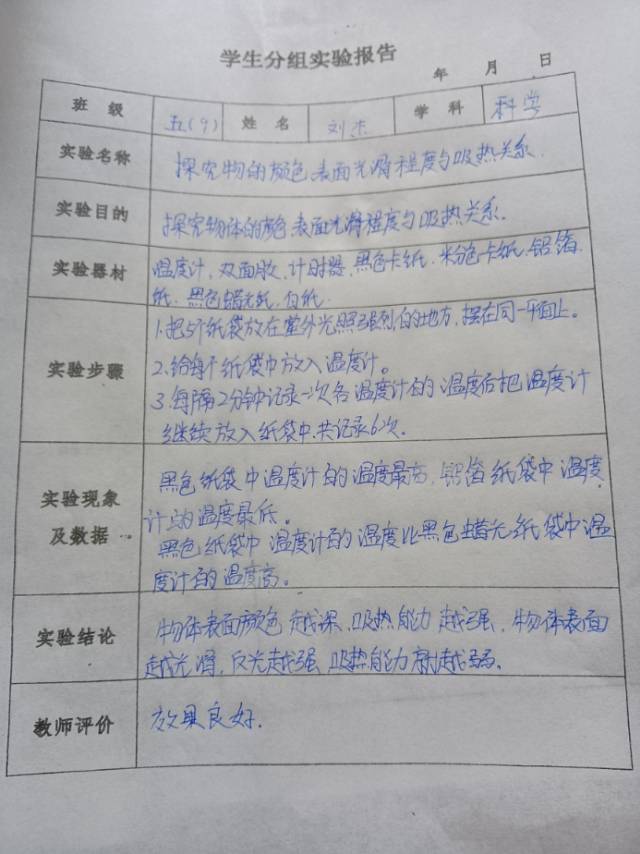 学生分组实验报告
年 月 日
班 级 五(9) 姓 名 刘杰 学 科 科学
实验名称 探究物的颜色表面光滑程度与吸热关系.
实验目的 探究物体的颜色表面光滑程度与吸热关系.
实验器材 温度计, 双面胶, 计时器, 黑色卡纸. 粉色卡纸. 铝箔
纸. 黑色蜡光纸, 白纸.
1.把5个纸袋放在室外光照强烈的地方, 摆在同一平面上。
实验步骤 2.给每个纸袋中放入温度计。
3.每隔2分钟记录一次各温度计的温度后把温度计
继续放入纸袋中.共记录6次.
实验现象 黑色纸袋中温度计的温度最高, 铝箔纸袋中温度
及数据 计的温度最低。
黑色纸袋中温度计的温度比黑色蜡光纸袋中温
度计的温度高。
实验结论 物体表面颜色越深, 吸热能力越强, 物体表面
越光滑, 反光越强 吸热能力就越弱。
教师评价 效果良好.